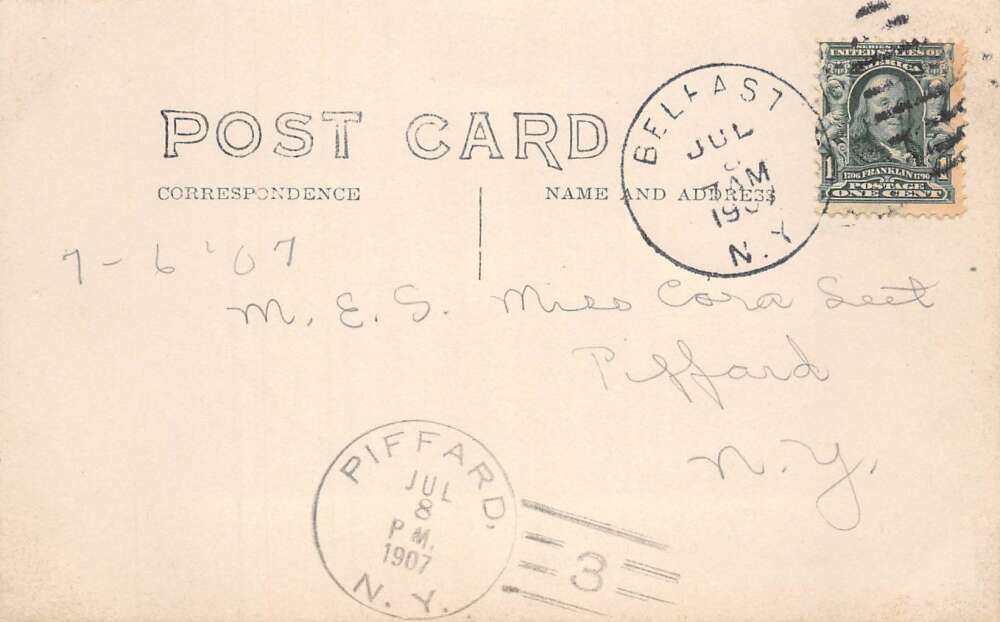 POST CARD
CORRESPONDENCE
NAME AND ADDRESS
BELFAST
JUL
7 AM
1907
N.Y.
SERIES
UNITED STATES OF
AMERICA
1706 FRANKLIN 1790
1 POSTAGE 1
ONE CENT
7-6 '07
M. E. S. Miss Cora
Piffard
N.Y.
PIFFARD,
JUL
8
P M.
1907
N. Y.
3